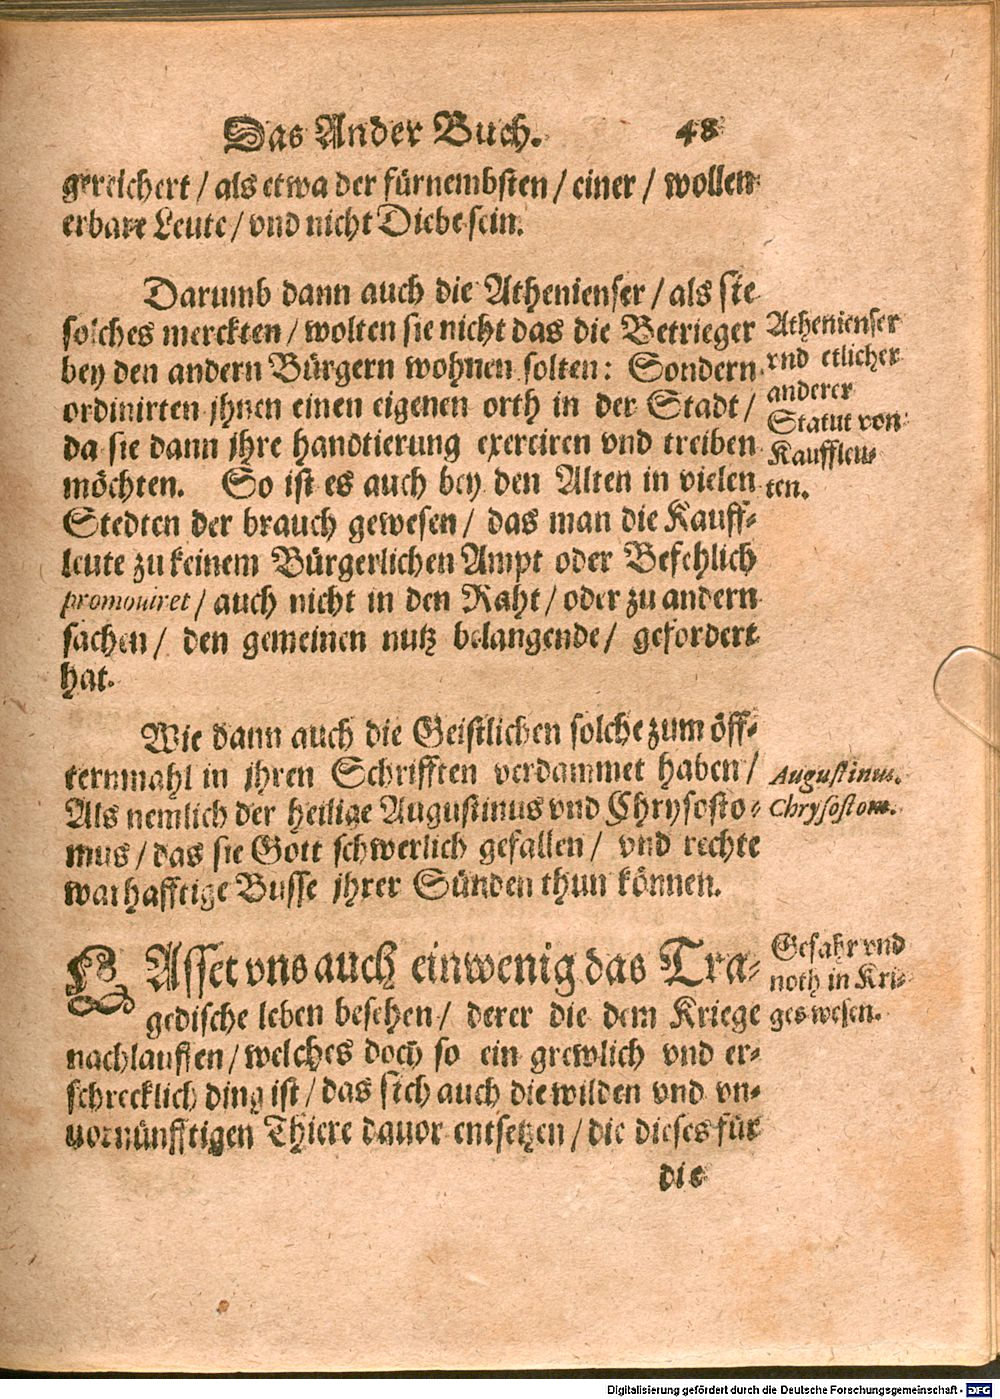 Das Ander Buch. 48
gereichert / als etwa der fürnembsten / einer / wollen
erbare Leute / vnd nicht Diebe sein.
Darumb dann auch die Athenienser / als sie
solches merckten / wolten sie nicht das die Betrieger
bey den andern Bürgern wohnen solten: Sondern
ordinirten jhnen einen eigenen orth in der Stadt /
da sie dann jhre handtierung exerciren vnd treiben
möchten. So ist es auch bey den Alten in vielen
Stedten der brauch gewesen / das man die Kauff-
leute zu keinem Bürgerlichen Ampt oder Befehlich
promouiret / auch nicht in den Raht / oder zu andern
sachen / den gemeinen nutz belangende / gefordert
hat.
Athenienser
vnd etlicher
anderer
Statut von
Kauffleu-
ten.
Wie dann auch die Geistlichen solche zum öff-
ternmahl in jhren Schrifften verdammet haben /
Als nemlich der heilige Augustinus vnd Chrysosto-
mus / das sie Gott schwerlich gefallen / vnd rechte
warhafftige Busse jhrer Sünden thun können.
Augustinus.
Chrysostom.
LAsset vns auch ein wenig das Tra-
gedische leben besehen / derer die dem Kriege
nachlauffen / welches doch so ein grewlich vnd er-
schrecklich ding ist / das sich auch die wilden vnd vn-
uornünfftigen Thiere dauor entsetzen / die dieses für
Gefahr vnd
noth in Kri-
geswesen.
die
Digitalisierung gefördert durch die Deutsche Forschungsgemeinschaft - DFG